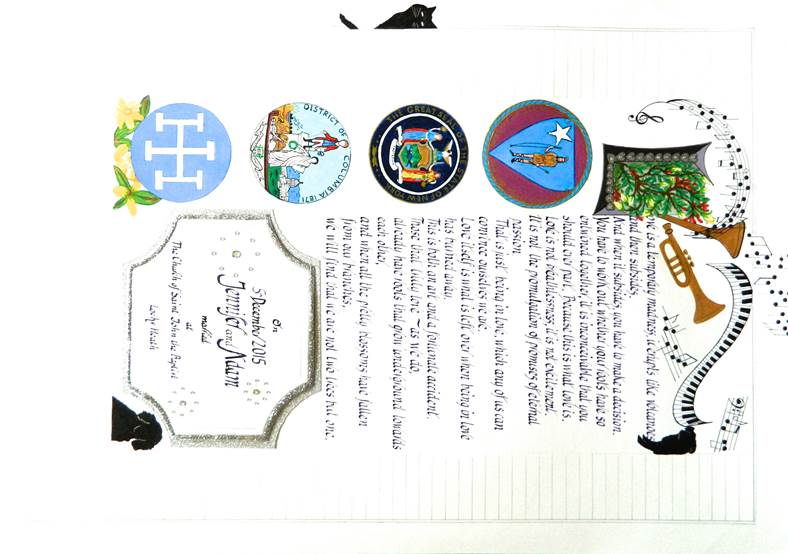 Love is a temporary madness, it erupts like volcanoes
and then subsides.
And when it subsides, you have to make a decision.
You have to work out whether your roots have so
entwined together, it is inconceivable that you
should ever part. Because this is what love is.
Love is not breathlessness, it is not excitement.
It is not the promulgation of promises of eternal
passion.
That is just being in love, which any of us can
convince ourselves we are.
Love itself is what is left over when being in love
has burned away.
This is both an art and a fortunate accident.
Those that truly love ~ as we do,
already have roots that grow underground towards
each other,
and when all the pretty blossoms have fallen
from our branches,
we will find that we are not two trees but one.
THE GREAT SEAL OF THE STATE OF NEW YORK
DISTRICT OF COLUMBIA 1871
On
5 December 2015
Jennifer and Adam
married
at
The Church of Saint John the Baptist
Locks Heath